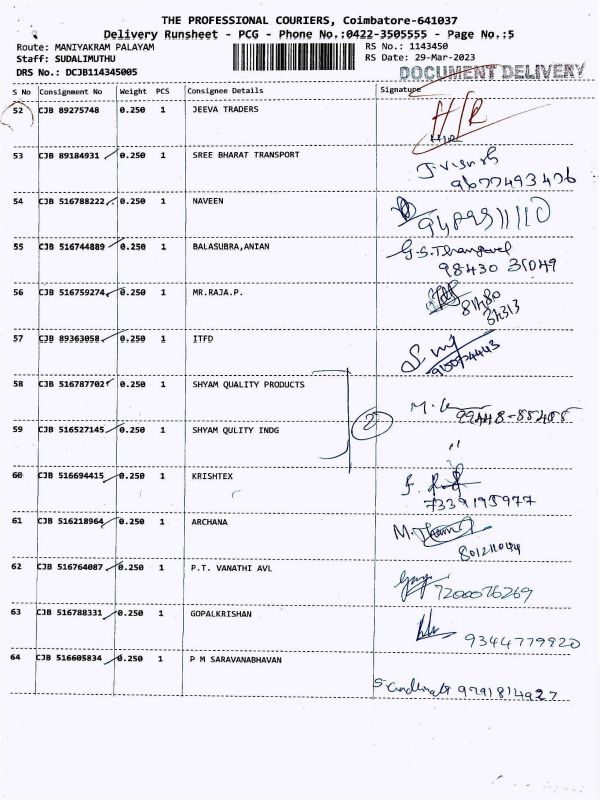 THE PROFESSIONAL COURIERS, Coimbatore-641037
Delivery Runsheet - PCG - Phone No.:0422-3505555 - Page No.:5
Route: MANIYAKRAM PALAYAM
RS No.: 1143450
Staff: SUDALIMUTHU
RS Date: 29-Mar-2023
DRS No.: DCJB114345005
DOCUMENT DELIVERY
S No Consignment No Weight PCS Consignee Details Signature
52 CJB 89275748 0.250 1 JEEVA TRADERS
H/R
53 CJB 89184931 0.250 1 SREE BHARAT TRANSPORT
9677493476
54 CJB 516788222 0.250 1 NAVEEN
55 CJB 516744889 0.250 1 BALASUBRA,ANIAN
G.S.Thangavel
98430 35049
56 CJB 516759274 0.250 1 MR.RAJA.P.
57 CJB 89363058 0.250 1 ITFD
58 CJB 516787702 0.250 1 SHYAM QUALITY PRODUCTS
2
59 CJB 516527145 0.250 1 SHYAM QULITY INDG
"
60 CJB 516694415 0.250 1 KRISHTEX
7339195977
61 CJB 516218964 0.250 1 ARCHANA
62 CJB 516764087 0.250 1 P.T. VANATHI AVL
7200076269
63 CJB 516788331 0.250 1 GOPALKRISHAN
9344779920
64 CJB 516605834 0.250 1 P M SARAVANABHAVAN
9791814927